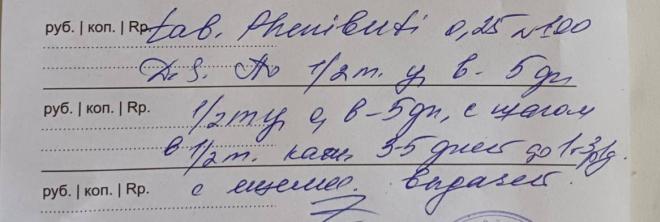 руб. | коп. | Rp. tab. Phenibuti 0,25 №100
D.S. По 1/2 т. у, в - 5 дн,
руб. | коп. | Rp. 1/2 т у, о, в - 5 дн, с шагом
в 1/2 т. кажд 3-5 дней до 1т 3р/д.
руб. | коп. | Rp. с ежемес. выдачей.